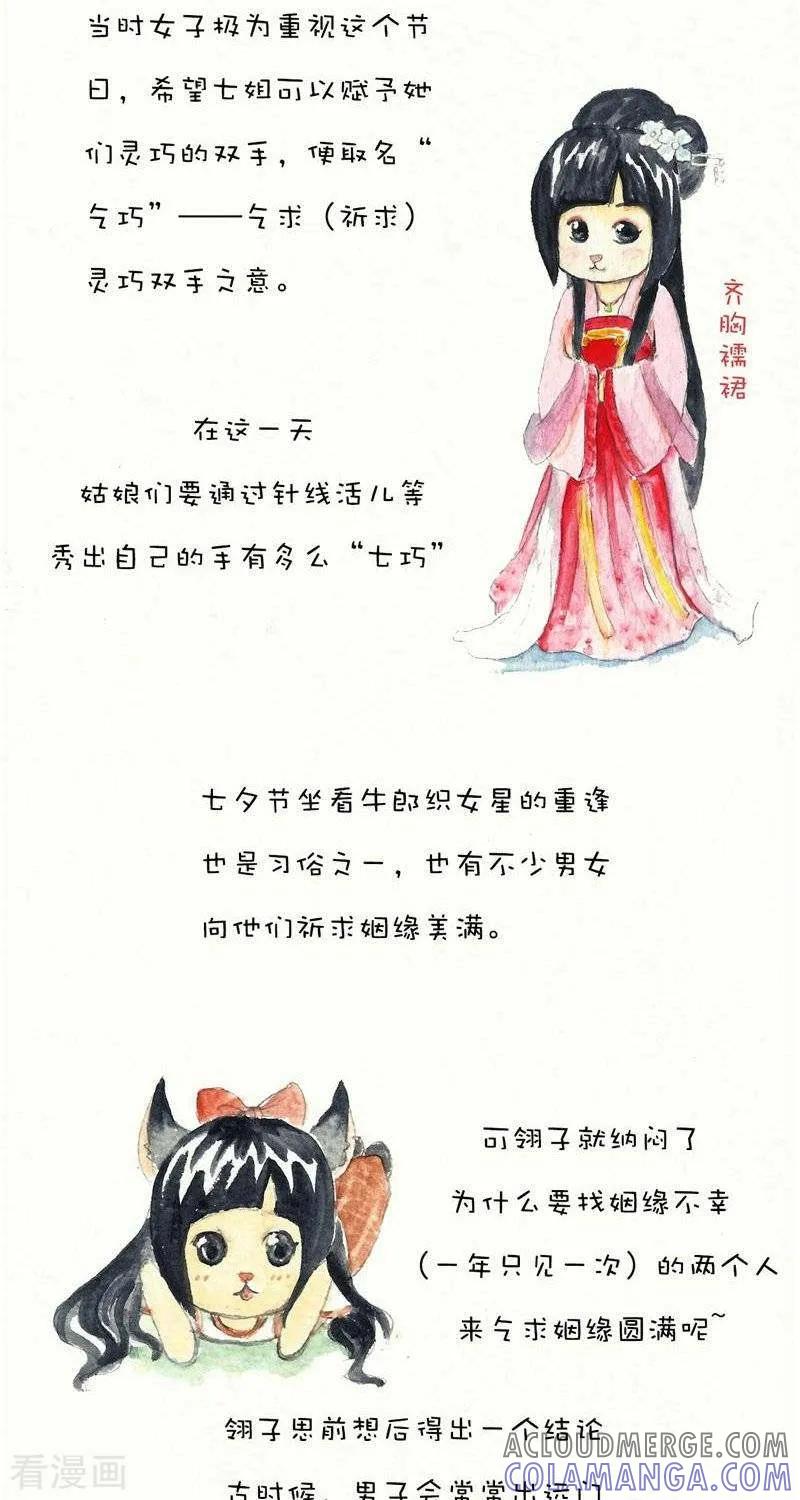 当时女子极为重视这个节
日，希望七姐可以赋予她
们灵巧的双手，便取名“
乞巧”——乞求（祈求）
灵巧双手之意。
齐胸襦裙
在这一天
姑娘们要通过针线活儿等
秀出自己的手有多么“七巧”
七夕节坐看牛郎织女星的重逢
也是习俗之一，也有不少男女
向他们祈求姻缘美满。
可翎子就纳闷了
为什么要找姻缘不幸
（一年只见一次）的两个人
来乞求姻缘圆满呢~
翎子思前想后得出一个结论
古时候，男子会常常出远门
看漫画
ACLOUDMERGE.COM
COLAMANGA.COM